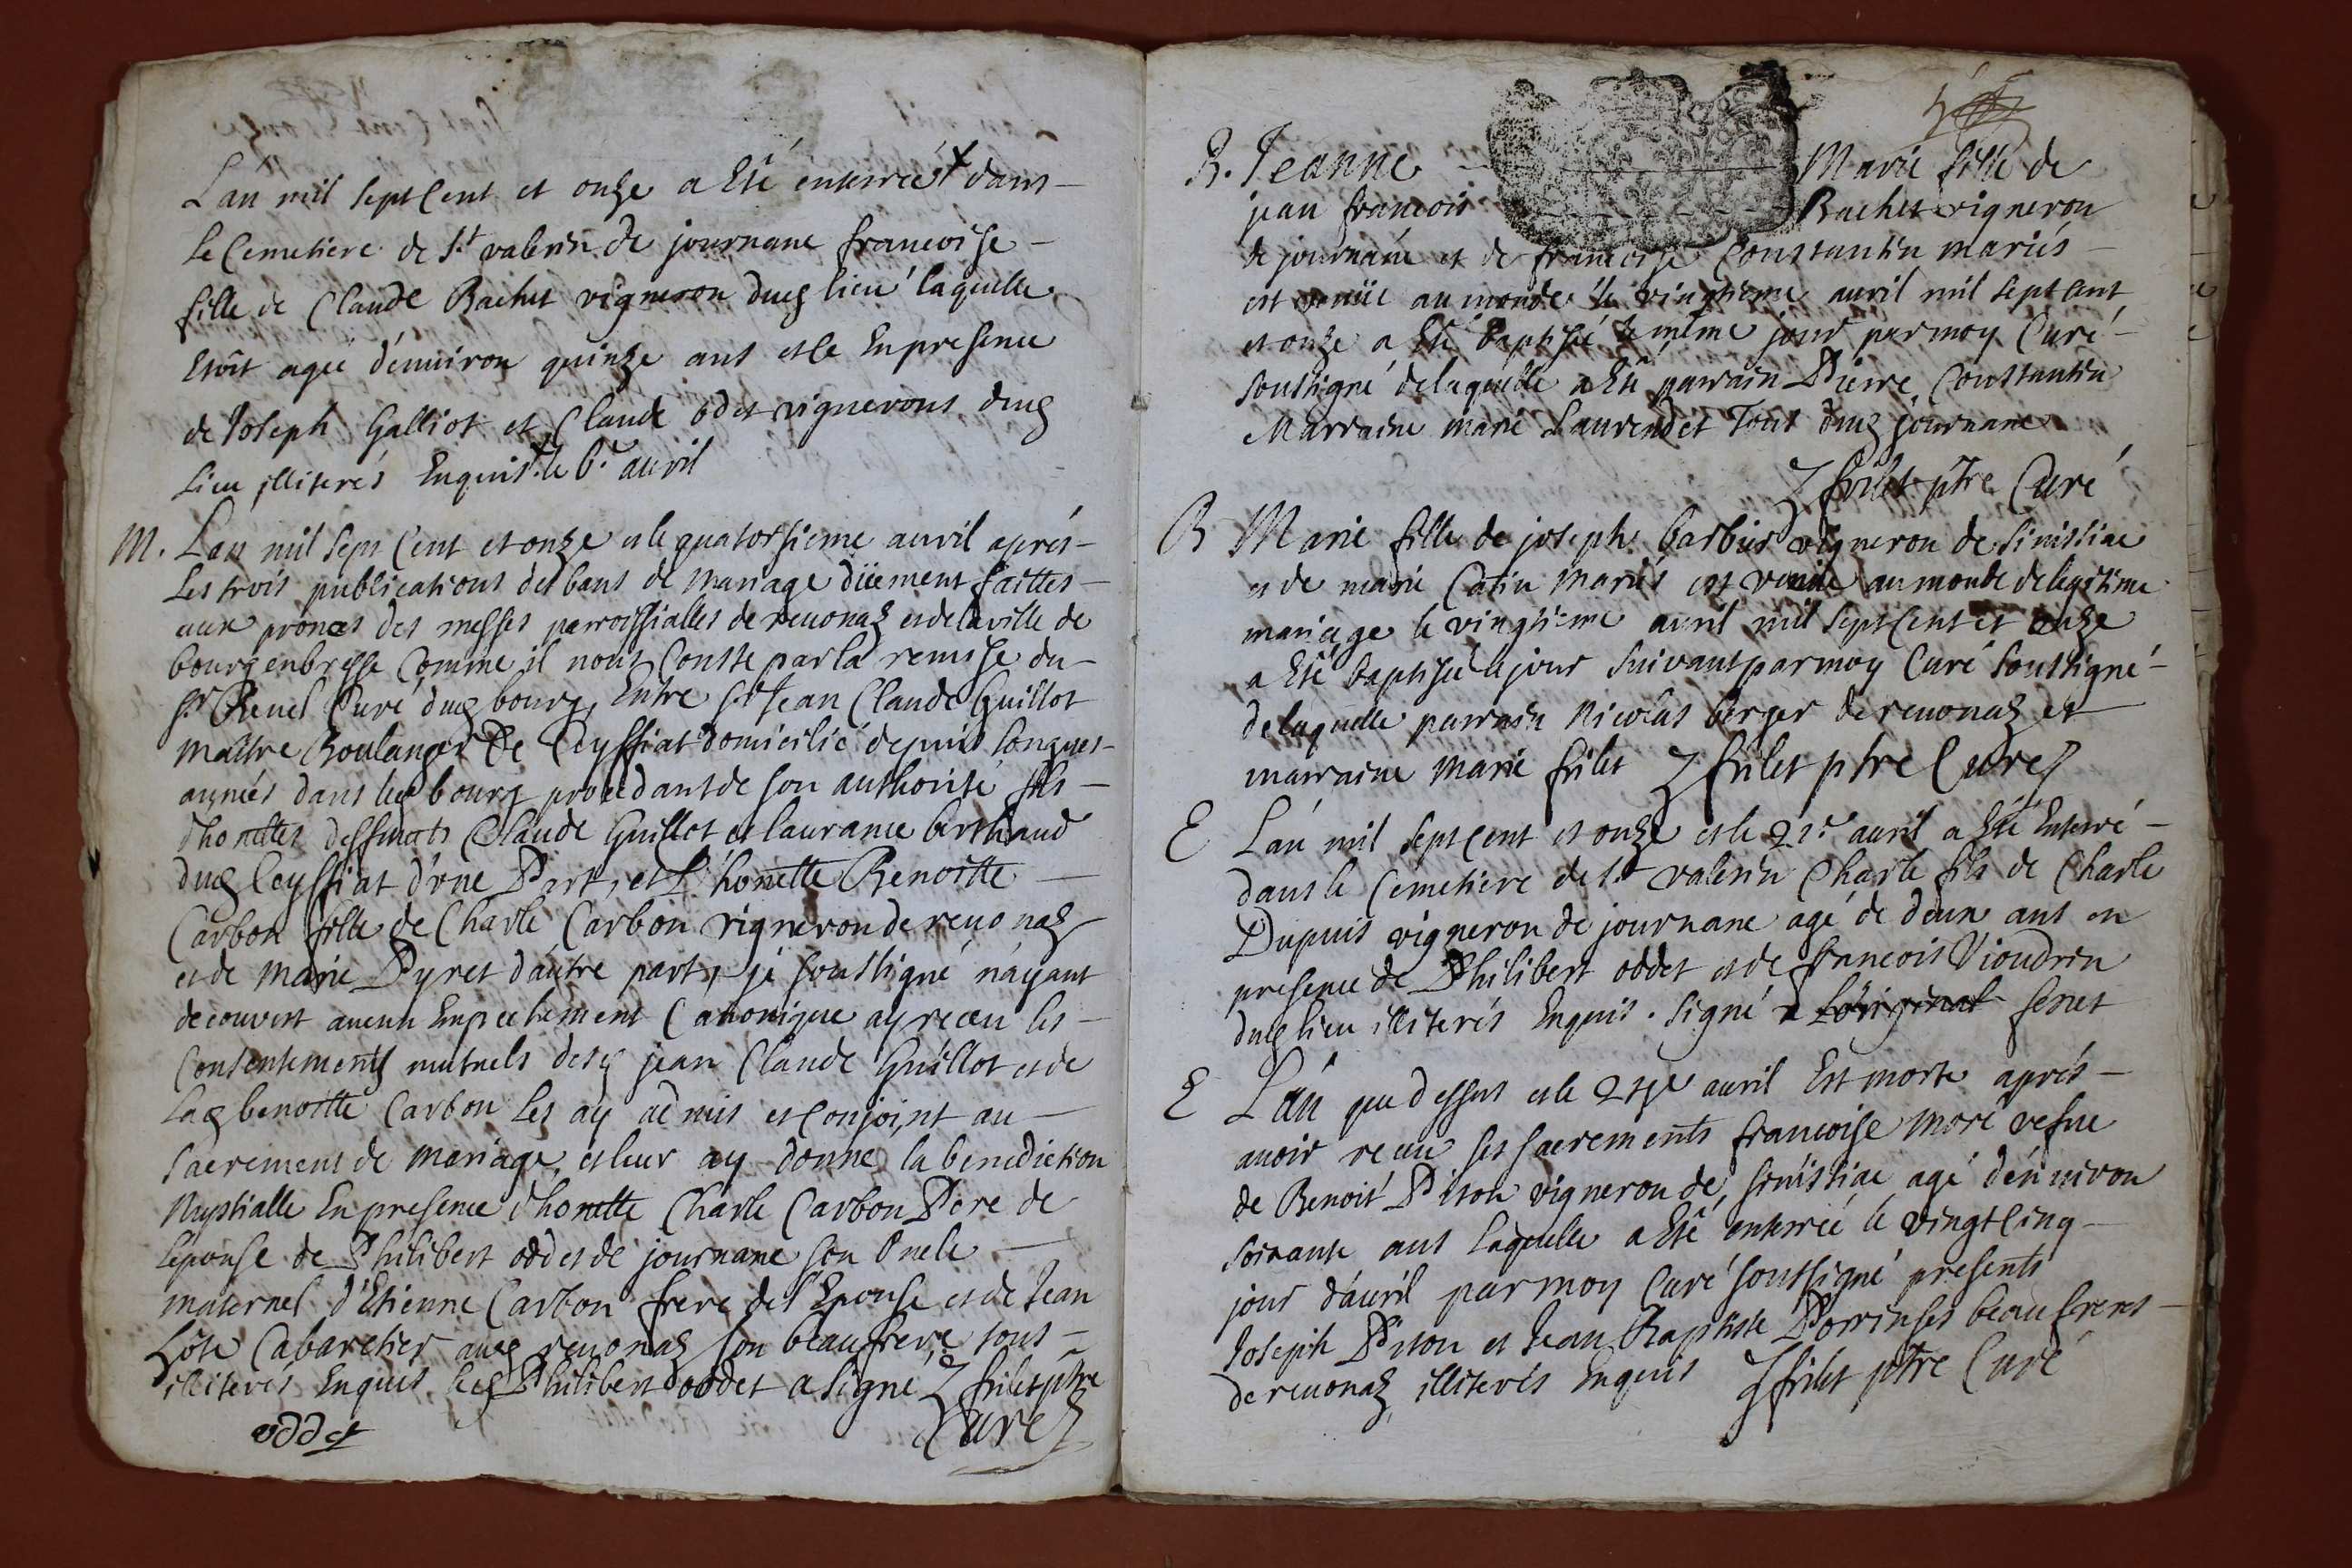 Lán mil sept Cent et onze a Eté enterrée + dans –
le Cemetiere de St valerin de journane francoise –
fille de Claude Bachet vigneron duq lieu laquelle
Etoit agée dénuiron quinze ans et ce En presence
de Joseph Galliot et Claude odet vignerons duq
Lieu illiterés Enquis + le 6e auril
M. Lán mil Sept Cent et onze et le quatorsieme auril aprés –
Les trois publications des bans de mariage düement faittes –
aux prones des messes parroissialles de reuonaz et de la ville de
bourg en bresse Comme il nous Conste par la remise du –
Sr Curé duq bourg, Entre Sr Jean Claude Guillot
maître Boulanger de Ceyssiat domicilié depuis longues –
années dans leq bourg procedant de son authorité fils –
dhonettes deffuncts Claude Guillot et laurance berthaud
duq Ceyssiat d'vne Part, et L'honette Benoitte –
Carbon fille de Charle Carbon vigneron de reuonaz
et de marie Pyret dáutre part, je soussigné náyant
decouvert aucun Empechement Canonique ay receu les –
Consentements mutuels desq jean Claude Guillot et de
laq benoitte Carbon Les ay admis et Conjoint au –
Sacrement de mariage, et leur ay donné la benediction
Nuptialle En presence dhonette Charle Carbon Pere de
lépouse de Philibert oddet de journane son Oncle –
maternel d'Etienne Carbon frere de l'Epouse et de Jean
Cabaretier auq reuonaz son beaufrere tous –
illiterés Enquis leq Philibert oddet a signé frilet ptre
oddet Curé
B. Jeanne – Marie fille de
jean francois – Bachet vigneron
de journane et de francoise Constantin mariés –
est venüe au monde le vingtieme auril mil sept cent
et onze a Eté baptisée le même jour par moy Curé –
soussigné de laquelle a Eté parrain Pierre Constantin
Marraine marie Laurendet Tous duq journane
frilet ptre Curé
B Marie fille de joseph barbier vigneron de Simissiac
et de marie Catin mariés est venüe au monde de legitime
mariage le vingtieme avril mil sept Cent et onze
a Eté baptisée le jour suivant par moy Curé soussigné –
de laquelle parrain Nicolas berger de reuonaz et
marraine marie frilet frilet ptre Curé
E Lán mil sept Cent et onze et le 21e auril a Eté Enterré –
dans le Cemetiere de St valerin Charle fils de Charle
Dupuis vigneron de journane agé de deux ans en
presence de Philibert oddet et de francois Vioudrin
duq lieu illiterés Enquis. signé a Lóriginal
E Lán que dessus et le auril Est morte aprés –
auoir receu ses sacrements francoise moré vefue
de Benoit Piton vigneron de simissiac agé dénuiron
soixante ans laquelle a Eté enterrée le vingt Cinq –
jour dáuril par moy Curé soussigné presents
Joseph Piton et Jean Baptiste beaufreres –
de reuonaz, illiterés Enquis frilet ptre Curé